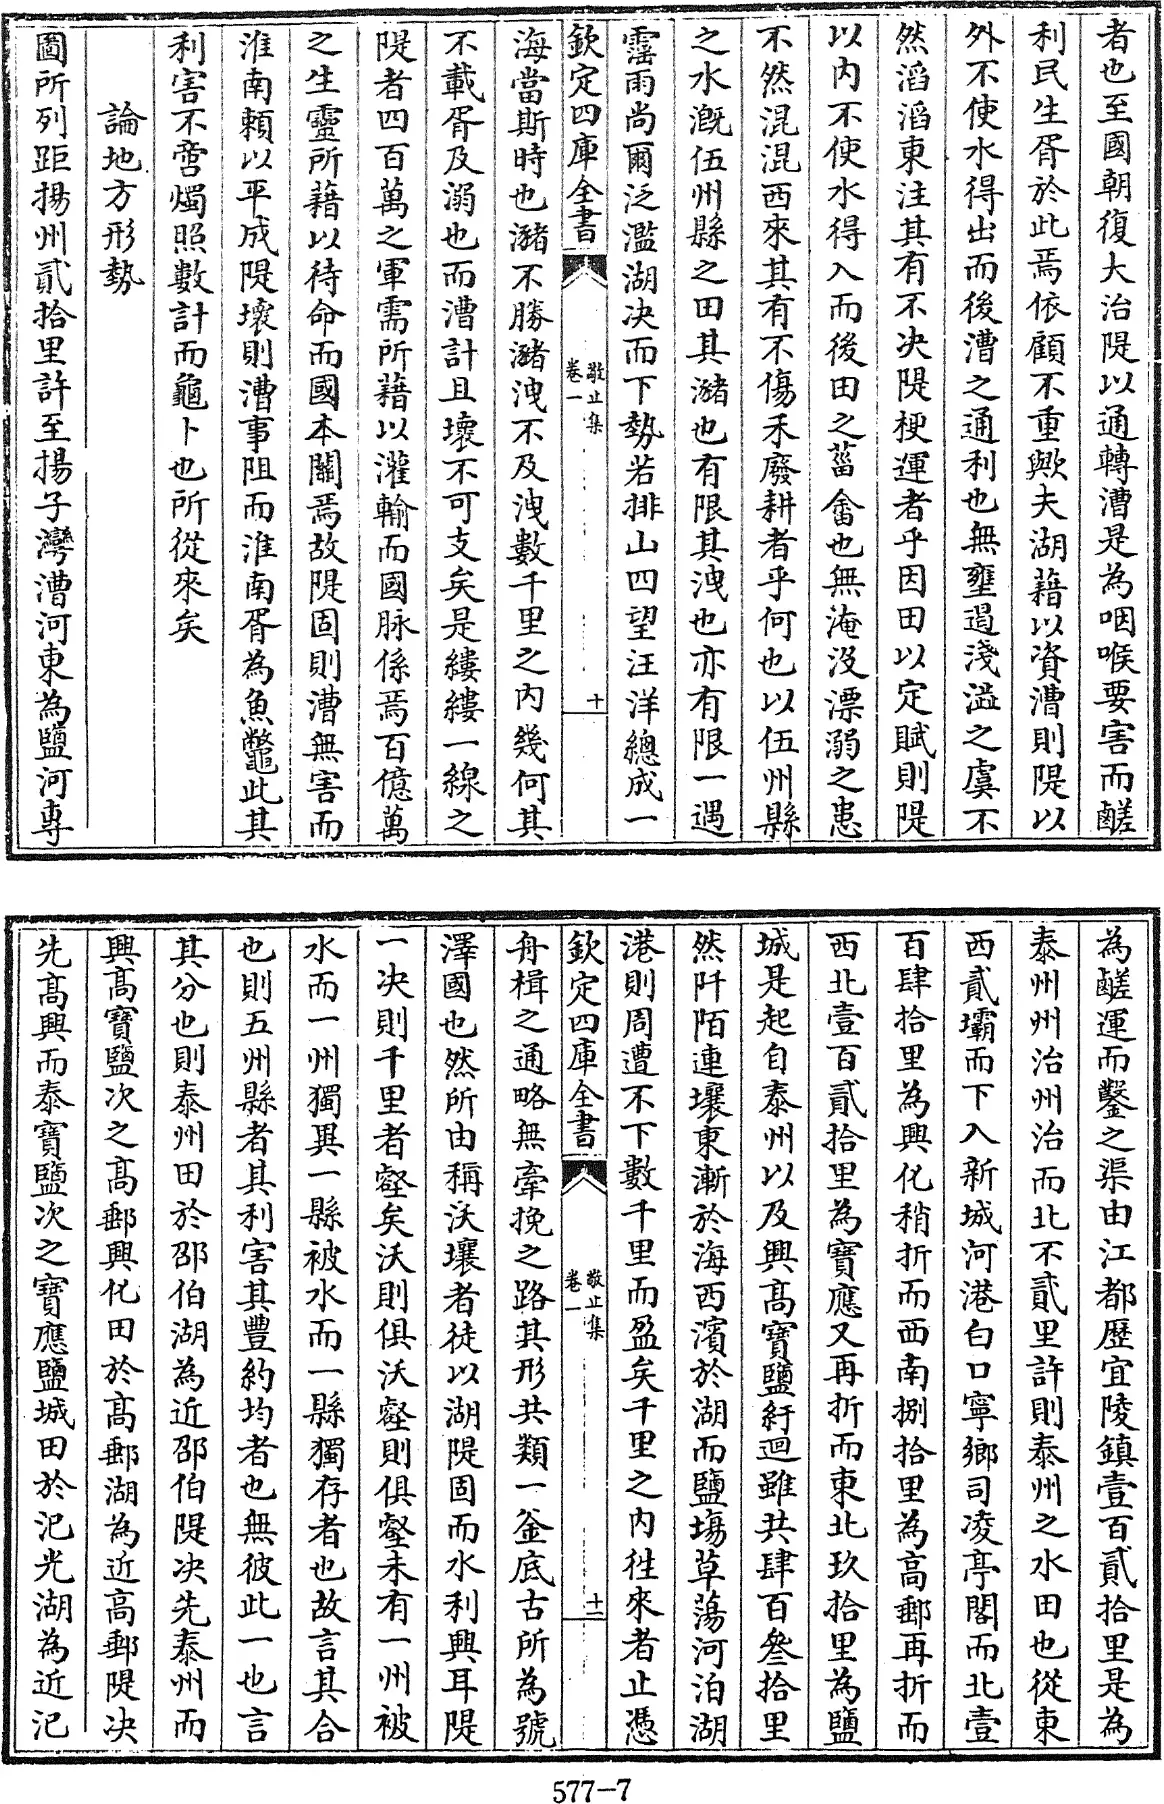 者也至國朝復大治隄以通轉漕是為咽喉要害而鹺
利民生胥於此焉依顧不重歟夫湖藉以資漕則隄以
外不使水得出而後漕之通利也無壅遏淺澁之虞不
然滔滔東注其有不決隄梗運者乎因田以定賦則隄
以內不使水得入而後田之菑畬也無淹沒漂溺之患
不然混混西來其有不傷禾廢耕者乎何也以伍州縣
之水溉伍州縣之田其瀦也有限其洩也亦有限一遇
霪雨尚爾泛濫湖決而下勢若排山四望汪洋總成一
欽定四庫全書
敬止集
卷一
十
海當斯時也瀦不勝瀦洩不及洩數千里之內幾何其
不載胥及溺也而漕計且壞不可支矣是縷縷一線之
隄者四百萬之軍需所藉以灌輸而國脉係焉百億萬
之生靈所藉以待命而國本關焉故隄固則漕無害而
淮南賴以平成隄壞則漕事阻而淮南胥為魚鼈此其
利害不啻燭照數計而龜卜也所從來矣
論地方形勢
圖所列距揚州貳拾里許至揚子灣漕河東為鹽河專
為鹺運而鑿之渠由江都歷宜陵鎮壹百貳拾里是為
泰州州治州治而北不貳里許則泰州之水田也從東
西貳壩而下入新城河港白口寧鄉司凌亭閣而北壹
百肆拾里為興化稍折而西南捌拾里為高郵再折而
西北壹百貳拾里為寶應又再折而東北玖拾里為鹽
城是起自泰州以及興高寶鹽紆迴雖共肆百叄拾里
然阡陌連壤東漸於海西濱於湖而鹽塲草蕩河泊湖
港則周遭不下數千里而盈矣千里之內徃來者止憑
欽定四庫全書
敬止集
卷一
十一
舟楫之通略無牽挽之路其形共類一釜底古所為號
澤國也然所由稱沃壤者徒以湖隄固而水利興耳隄
一決則千里者壑矣沃則俱沃壑則俱壑未有一州被
水而一州獨異一縣被水而一縣獨存者也故言其合
也則五州縣者其利害其豐約均者也無彼此一也言
其分也則泰州田於邵伯湖為近邵伯隄決先泰州而
興高寶鹽次之高郵興化田於高郵湖為近高郵隄決
先高興而泰寶鹽次之寶應鹽城田於汜光湖為近汜
577-7